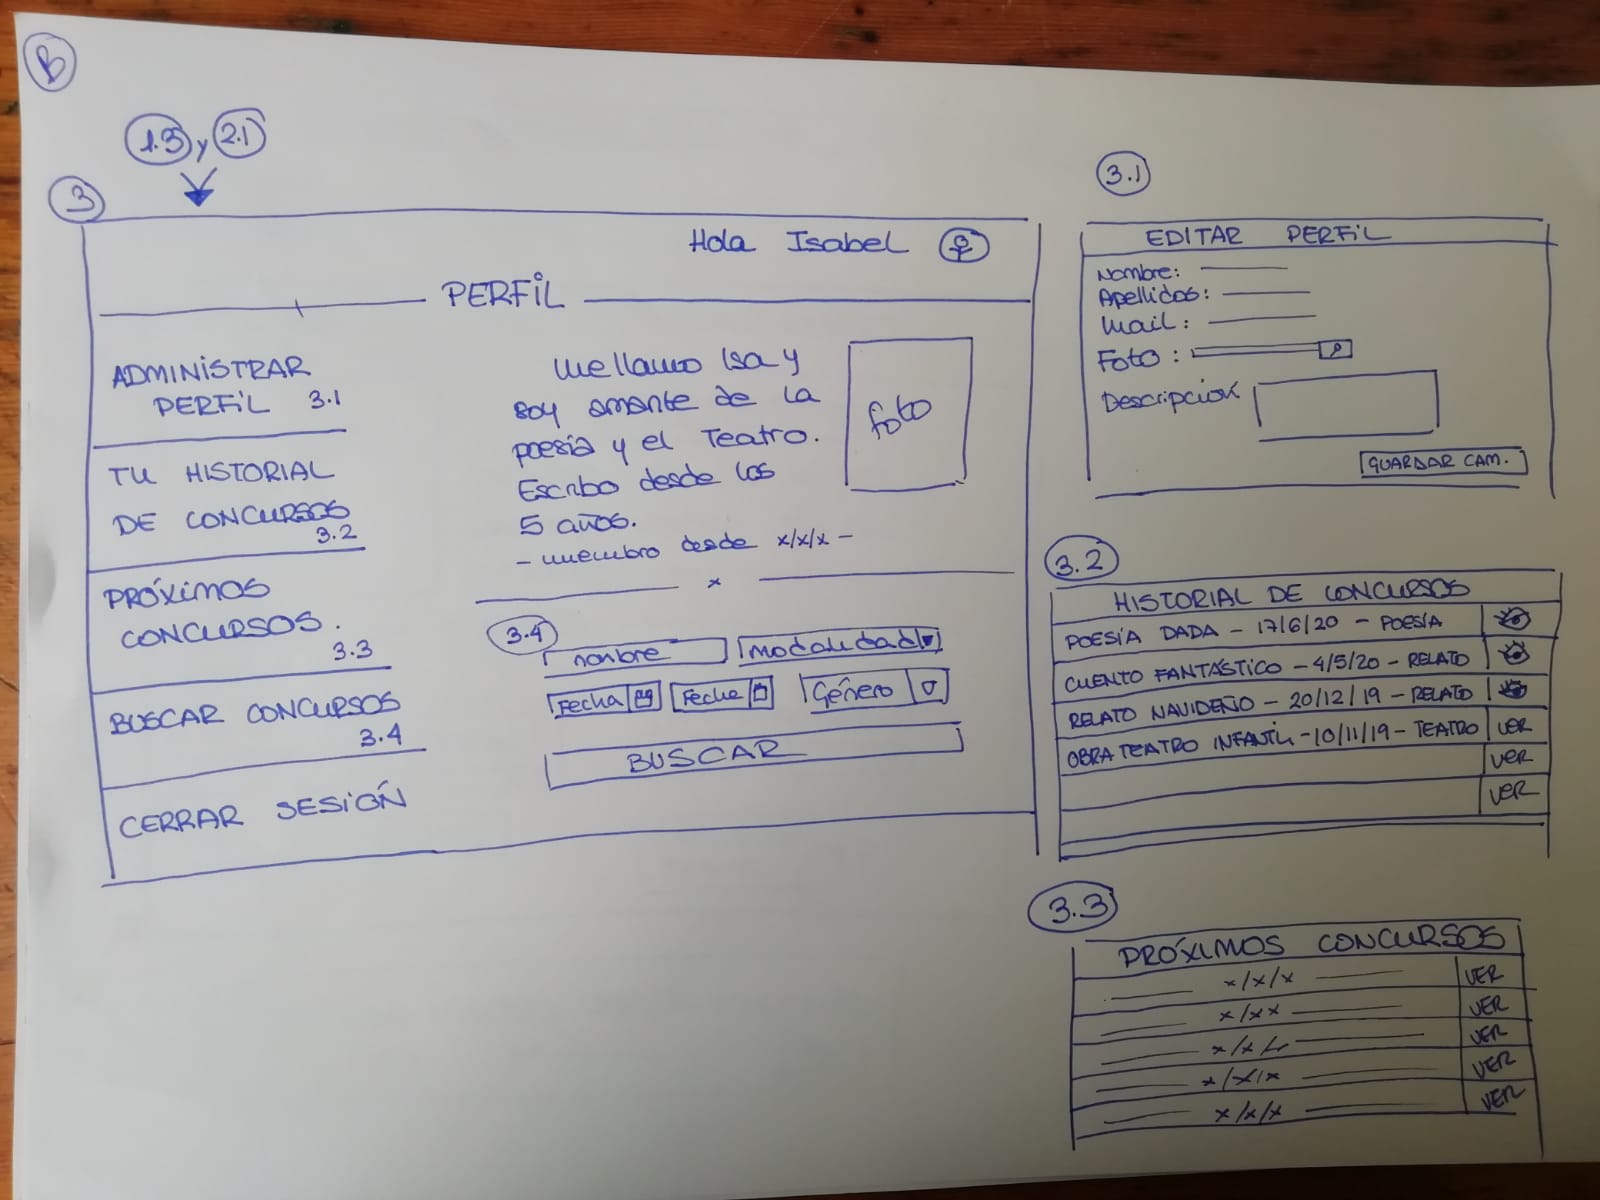 B
1.3 y 2.1
3
Hola Isabel
PERFIL
ADMINISTRAR
PERFIL 3.1
TU HISTORIAL
DE CONCURSOS
3.2
PRÓXIMOS
CONCURSOS.
3.3
BUSCAR CONCURSOS
3.4
CERRAR SESIÓN
Me llamo Isa y
soy amante de la
poesía y el Teatro.
Escribo desde los
5 años.
- miembro desde x/x/x -
foto
x
3.4
nombre
Modalidad
Fecha
Fecha
Género
BUSCAR
3.1
EDITAR PERFIL
Nombre:
Apellidos:
Mail:
Foto:
Descripción
GUARDAR CAM.
3.2
HISTORIAL DE CONCURSOS
POESÍA DADA - 17/6/20 - POESÍA
CUENTO FANTÁSTICO - 4/5/20 - RELATO
RELATO NAVIDEÑO - 20/12/19 - RELATO
OBRA TEATRO INFANTIL - 10/11/19 - TEATRO VER
VER
VER
3.3
PRÓXIMOS CONCURSOS
x/x/x VER
x/xx VER
x/x VER
x/x/x VER
x/x/x VER